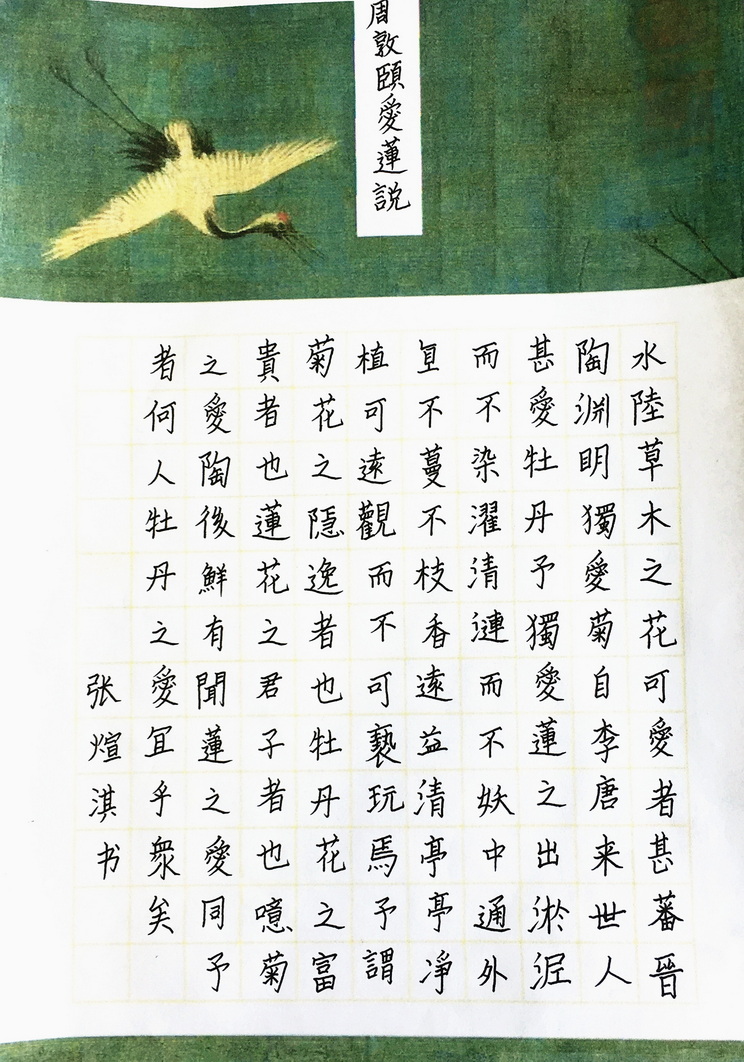 周敦頤愛蓮説
水陸草木之花可愛者甚蕃晉
陶淵明獨愛菊自李唐来世人
甚愛牡丹予獨愛蓮之出淤泥
而不染濯清漣而不妖中通外
直不蔓不枝香遠益清亭亭凈
植可遠觀而不可褻玩焉予謂
菊花之隱逸者也牡丹花之富
貴者也蓮花之君子者也噫菊
之愛陶後鮮有聞蓮之愛同予
者何人牡丹之愛宜乎衆矣
张煊淇书